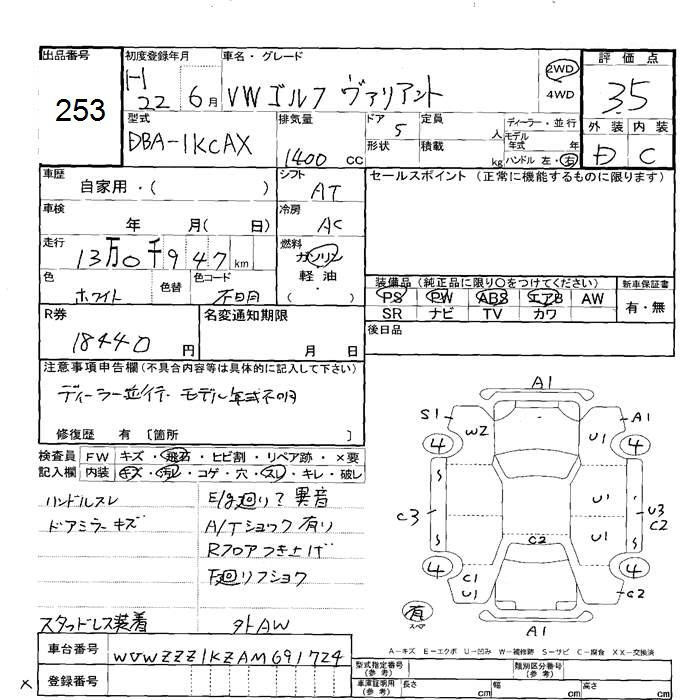 出品番号 初度登録年月 車名・グレード 評価点
253 H 22 6月 VWゴルフ ヴァリアント 2WD 4WD 3.5
型式 排気量 ドア 定員 ディーラー・並行 外装 内装
DBA-1KCAX 1400 cc 5 人 モデル年式 年 D C
形状 積載 kg ハンドル 左・右
車歴 シフト セールスポイント (正常に機能するものに限ります)
自家用・( ) AT
車検 冷房
年 月( 日) AC
走行 燃料
13万0千947km ガソリン
色 色替 色コード 軽油
ホワイト 不明 ( ・ )
装備品 (純正品に限り○をつけてください) 新車保証書
PS PW ABS エアB AW 有・無
SR ナビ TV カワ
R券 名変通知期限 後日品
18440円 月 日
注意事項申告欄 (不具合内容等は具体的に記入して下さい)
ディーラー並行. モデル年式不明
修復歴 有 〔箇所 〕
検査員 FW キズ・飛石・ヒビ割・リペア跡・×要
記入欄 内装 キズ・汚レ・コゲ・穴・スレ・キレ・破レ
ハンドルスレ E/g廻り?異音
ドアミラーキズ A/Tショック有り
Rフロアつき上げ
F廻リフショク
スタッドレス装着 外AW
A1
S1 W2 U1 A1
4 4
U1
C3 U3 C2
C2 U1
4 4
C1 U1 C2
A1
有
スペア
A-キズ E-エクボ U-凹み W-補修跡 S-サビ C-腐食 XX-交換済
車台番号 WVWZZZ1KZAM691724
型式指定番号 (参考) 類別区分番号 (参考)
× 登録番号
車庫証明用 (参考) 長さ cm 幅 cm 高さ cm